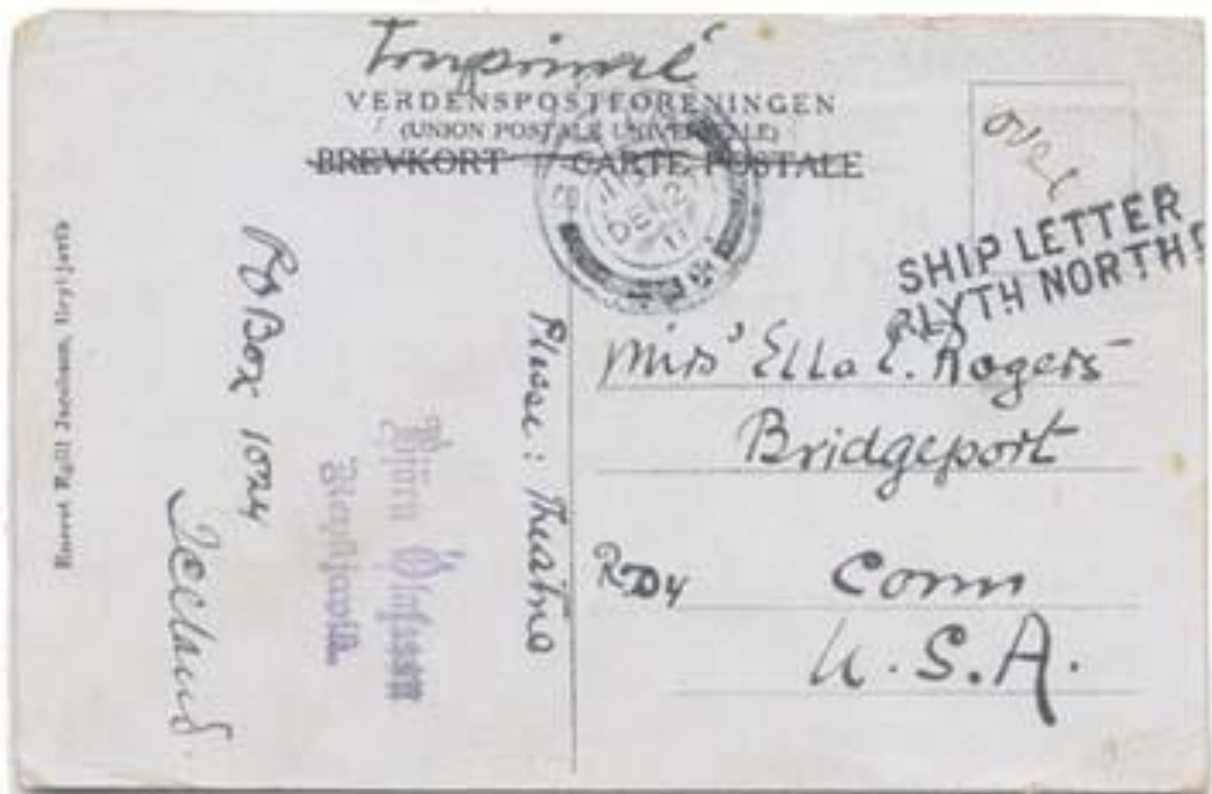 Imprimé
VERDENSPOSTFORENINGEN
(UNION POSTALE UNIVERSELLE)
BREVKORT CARTE POSTALE
over
SHIP LETTER
BLYTH NORTH
Miss Ella E. Rogers
Bridgeport
RD4 Conn
U.S.A.
Please: Theatre
Björn Ólafsson
Reykjavík
PO Box 1024
Iceland.
Jacobsen, Reykjavík